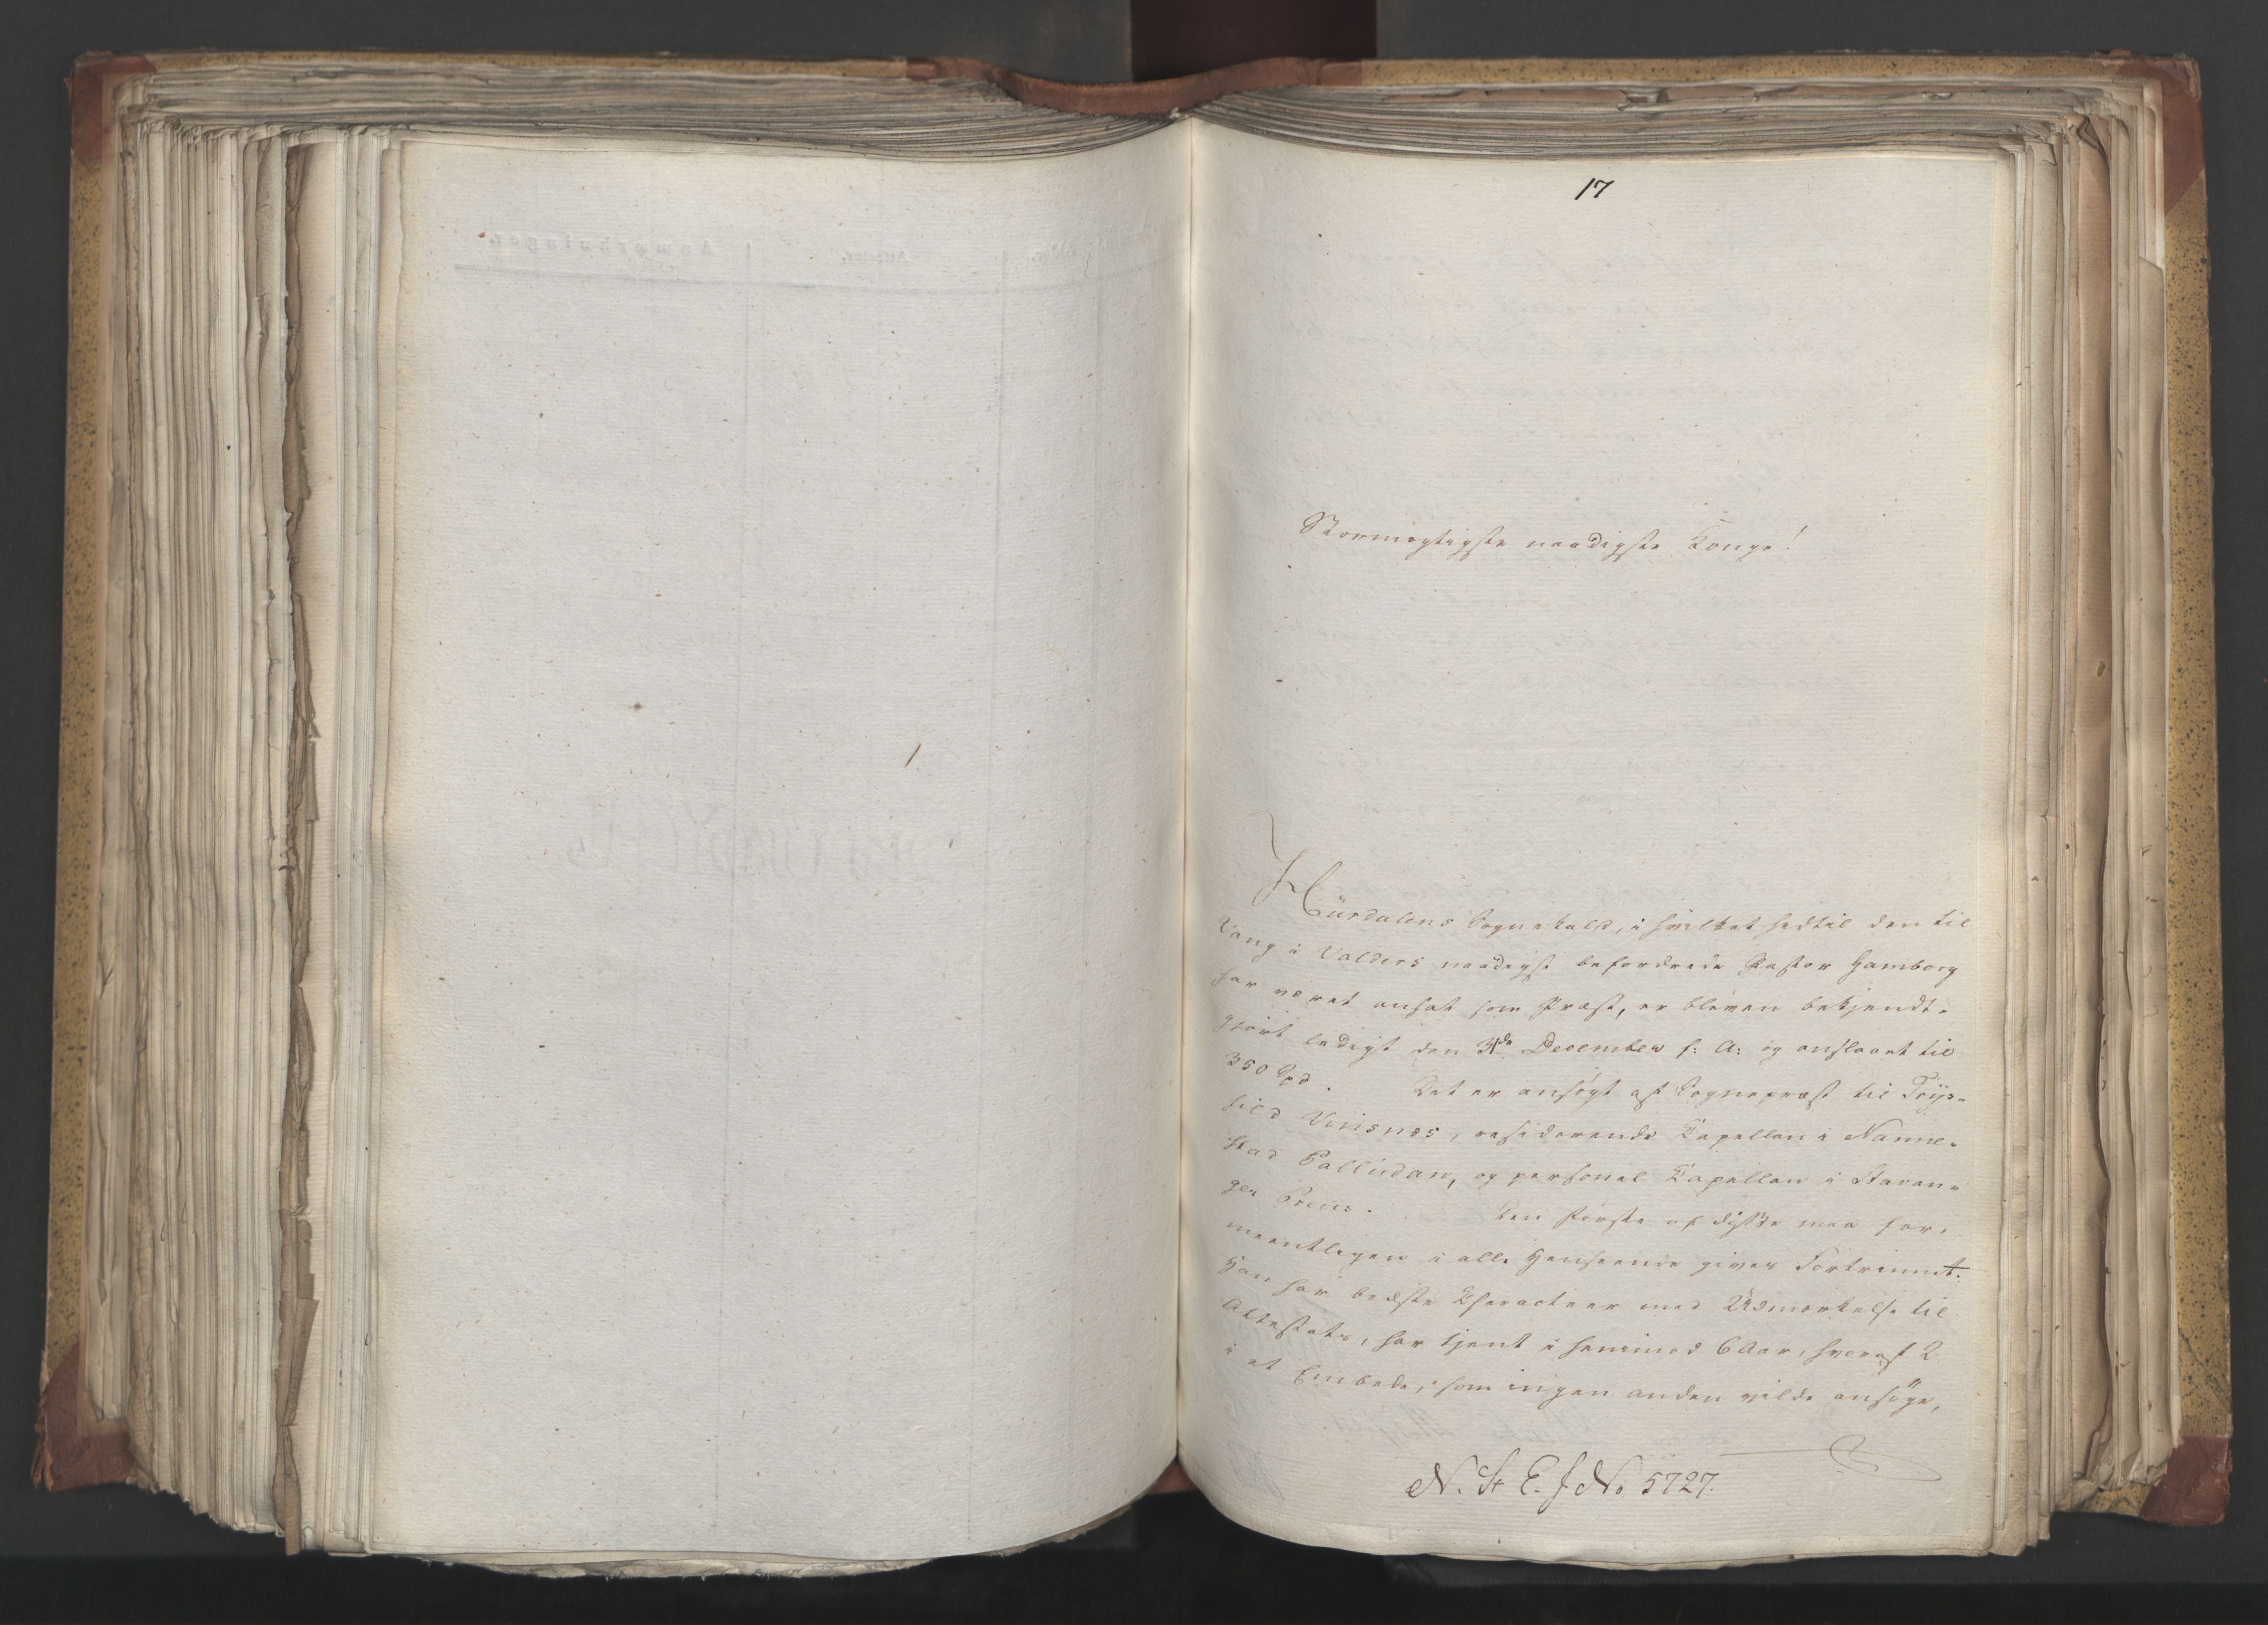 17
Stormægtigste naadigste Konge!
Hürdalens Sognekald, i hvilket hedtil den til
Vang i Valders naadigst befordrede Pastor Hamborg
har været ansat som Præst, er bleven bekjendt-
gjort ledigt den 31de December f: A: og anslaaet til
350 Spd. Det er ansøgt af Sognepræst til Trys-
sild Vinsnes, residerende Kapellan i Nanne-
stad Palludan, og personel Kapellan i Stavan-
ger Preus. Den første af disse maa for-
meentligen i alle Henseende gives Fortrinnet.
Han har bedste Characteer med Udmærkelse til
Attestats, har tjent i henimod 6 Aar, hvoraf 2
i et Embede, som ingen anden vilde ansøge,
N. St E. J No 5727.